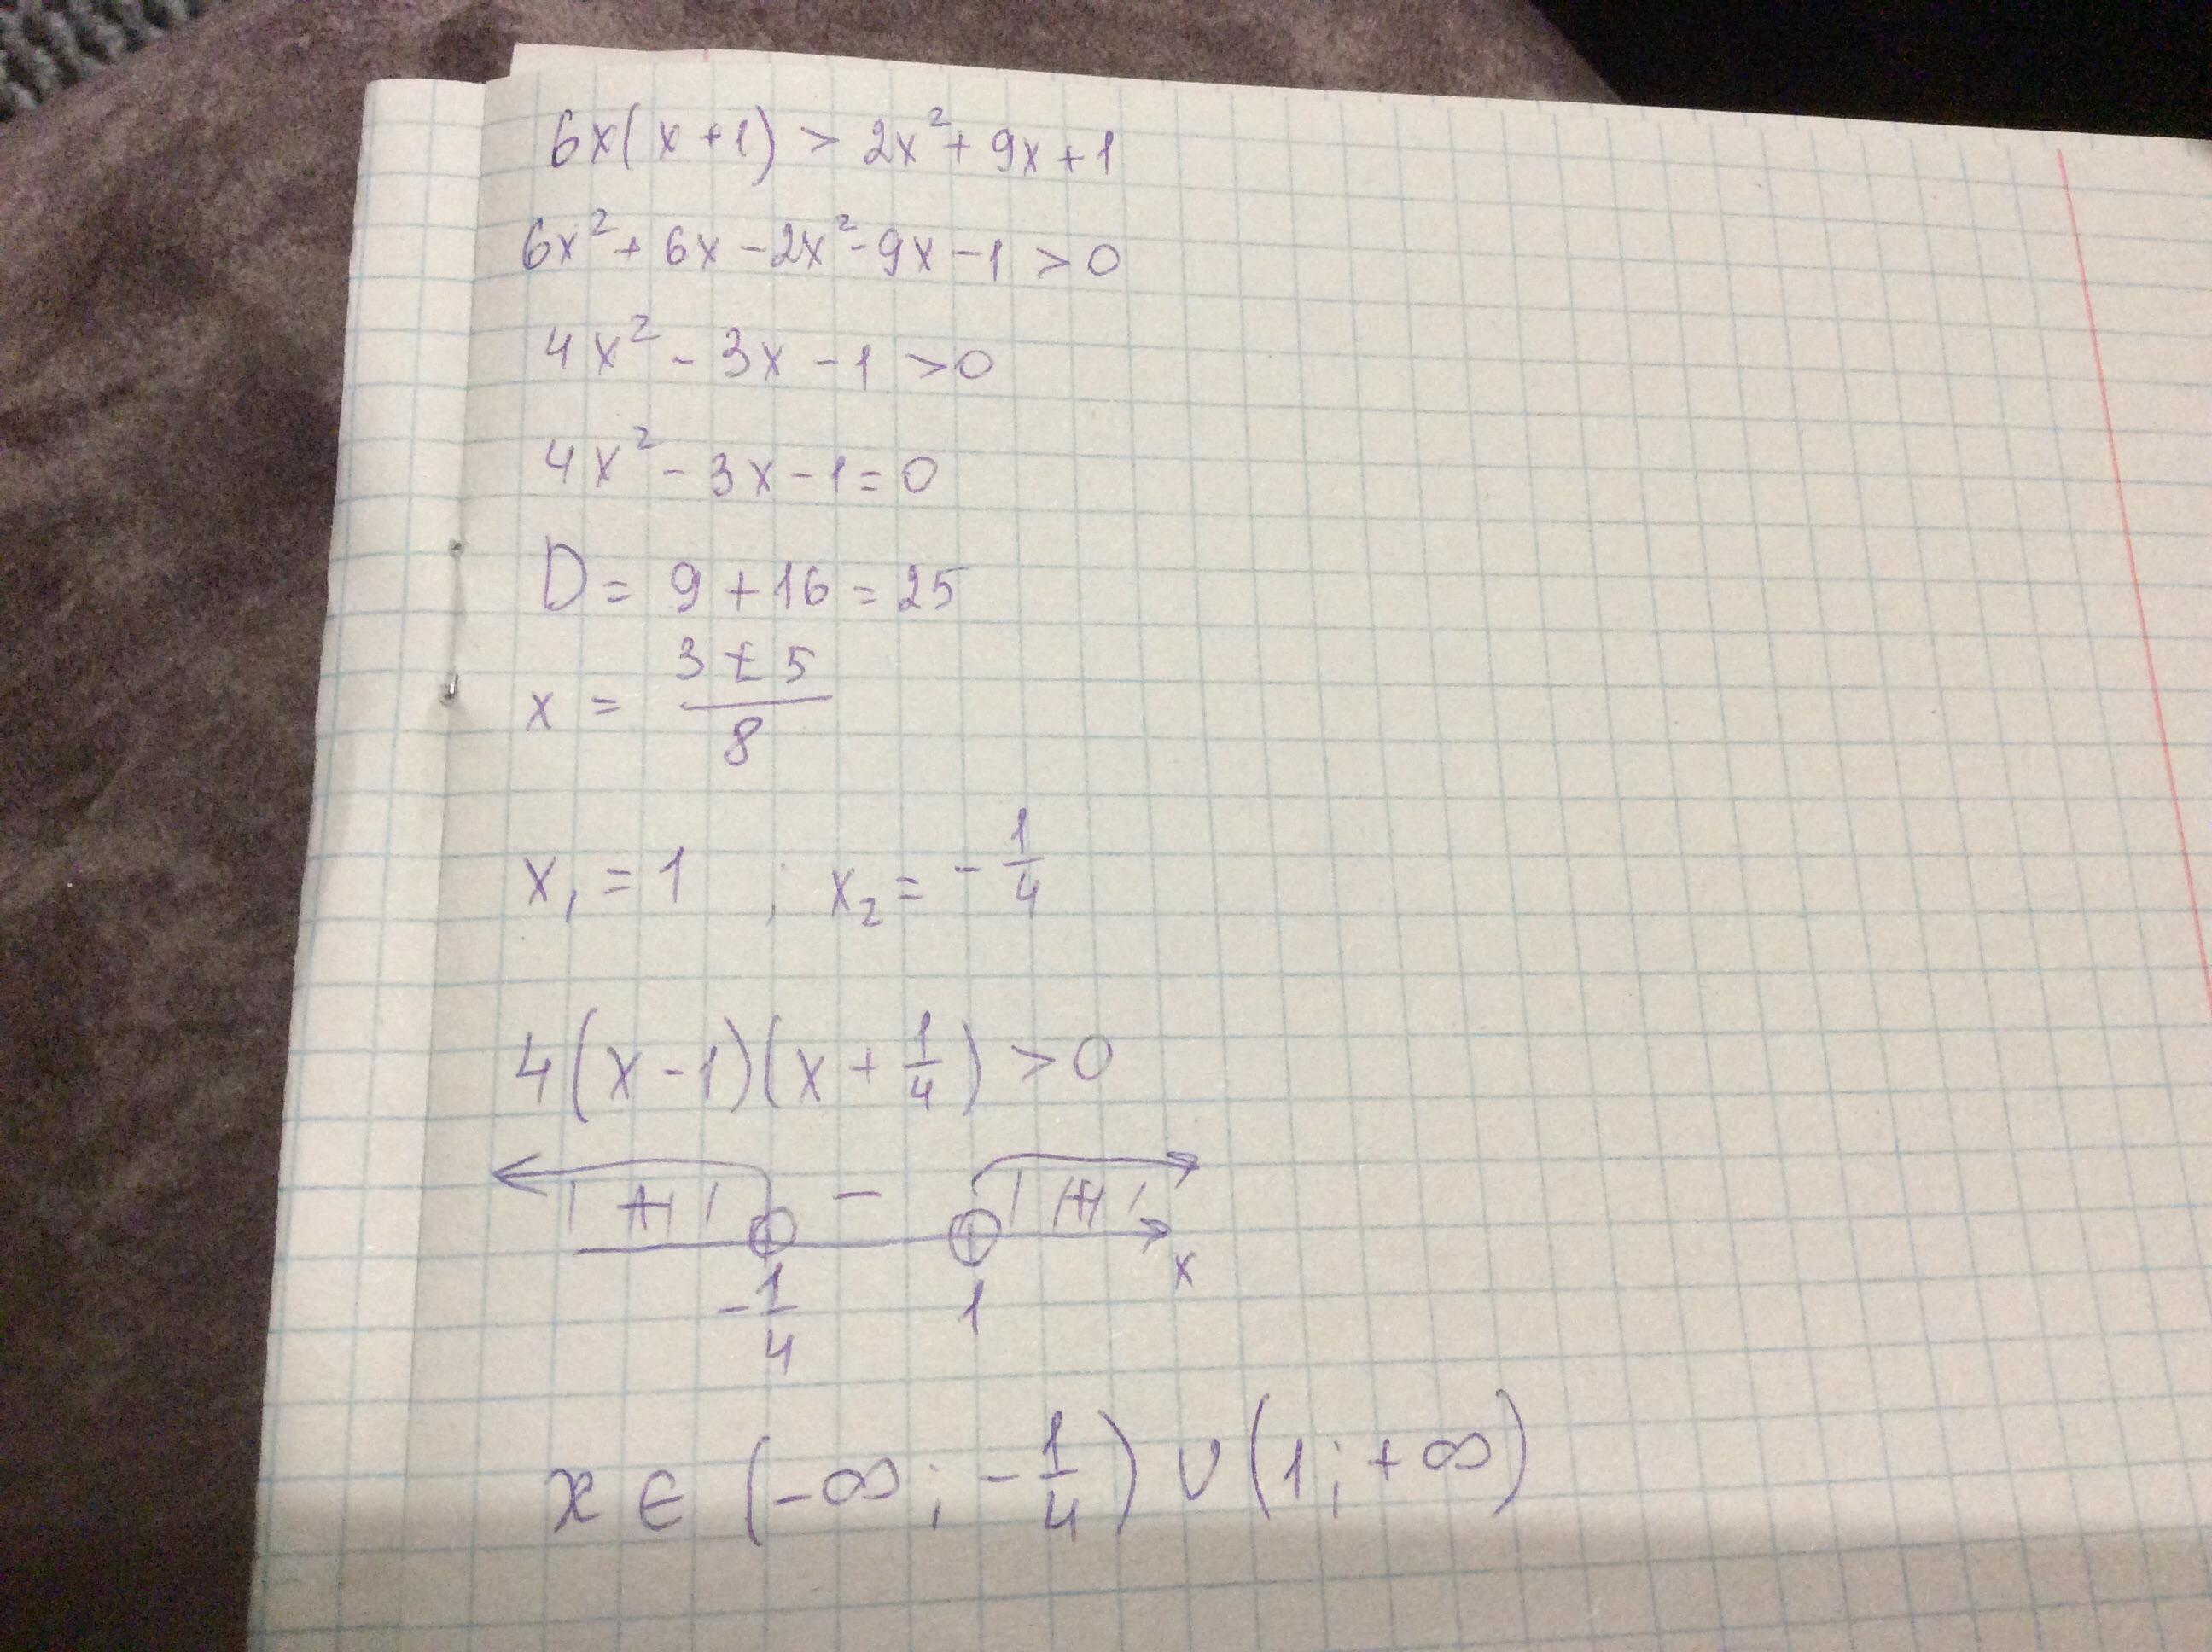 6x(x+1) > 2x²+9x+1
6x²+6x-2x²-9x-1>0
4x²-3x-1>0
4x²-3x-1=0
D=9+16=25
x = (3±5)/8
x₁=1 ; x₂=-1/4
4(x-1)(x+1/4)>0
+ - +
-1/4 1 x
x∈(-∞;-1/4)∪(1;+∞)